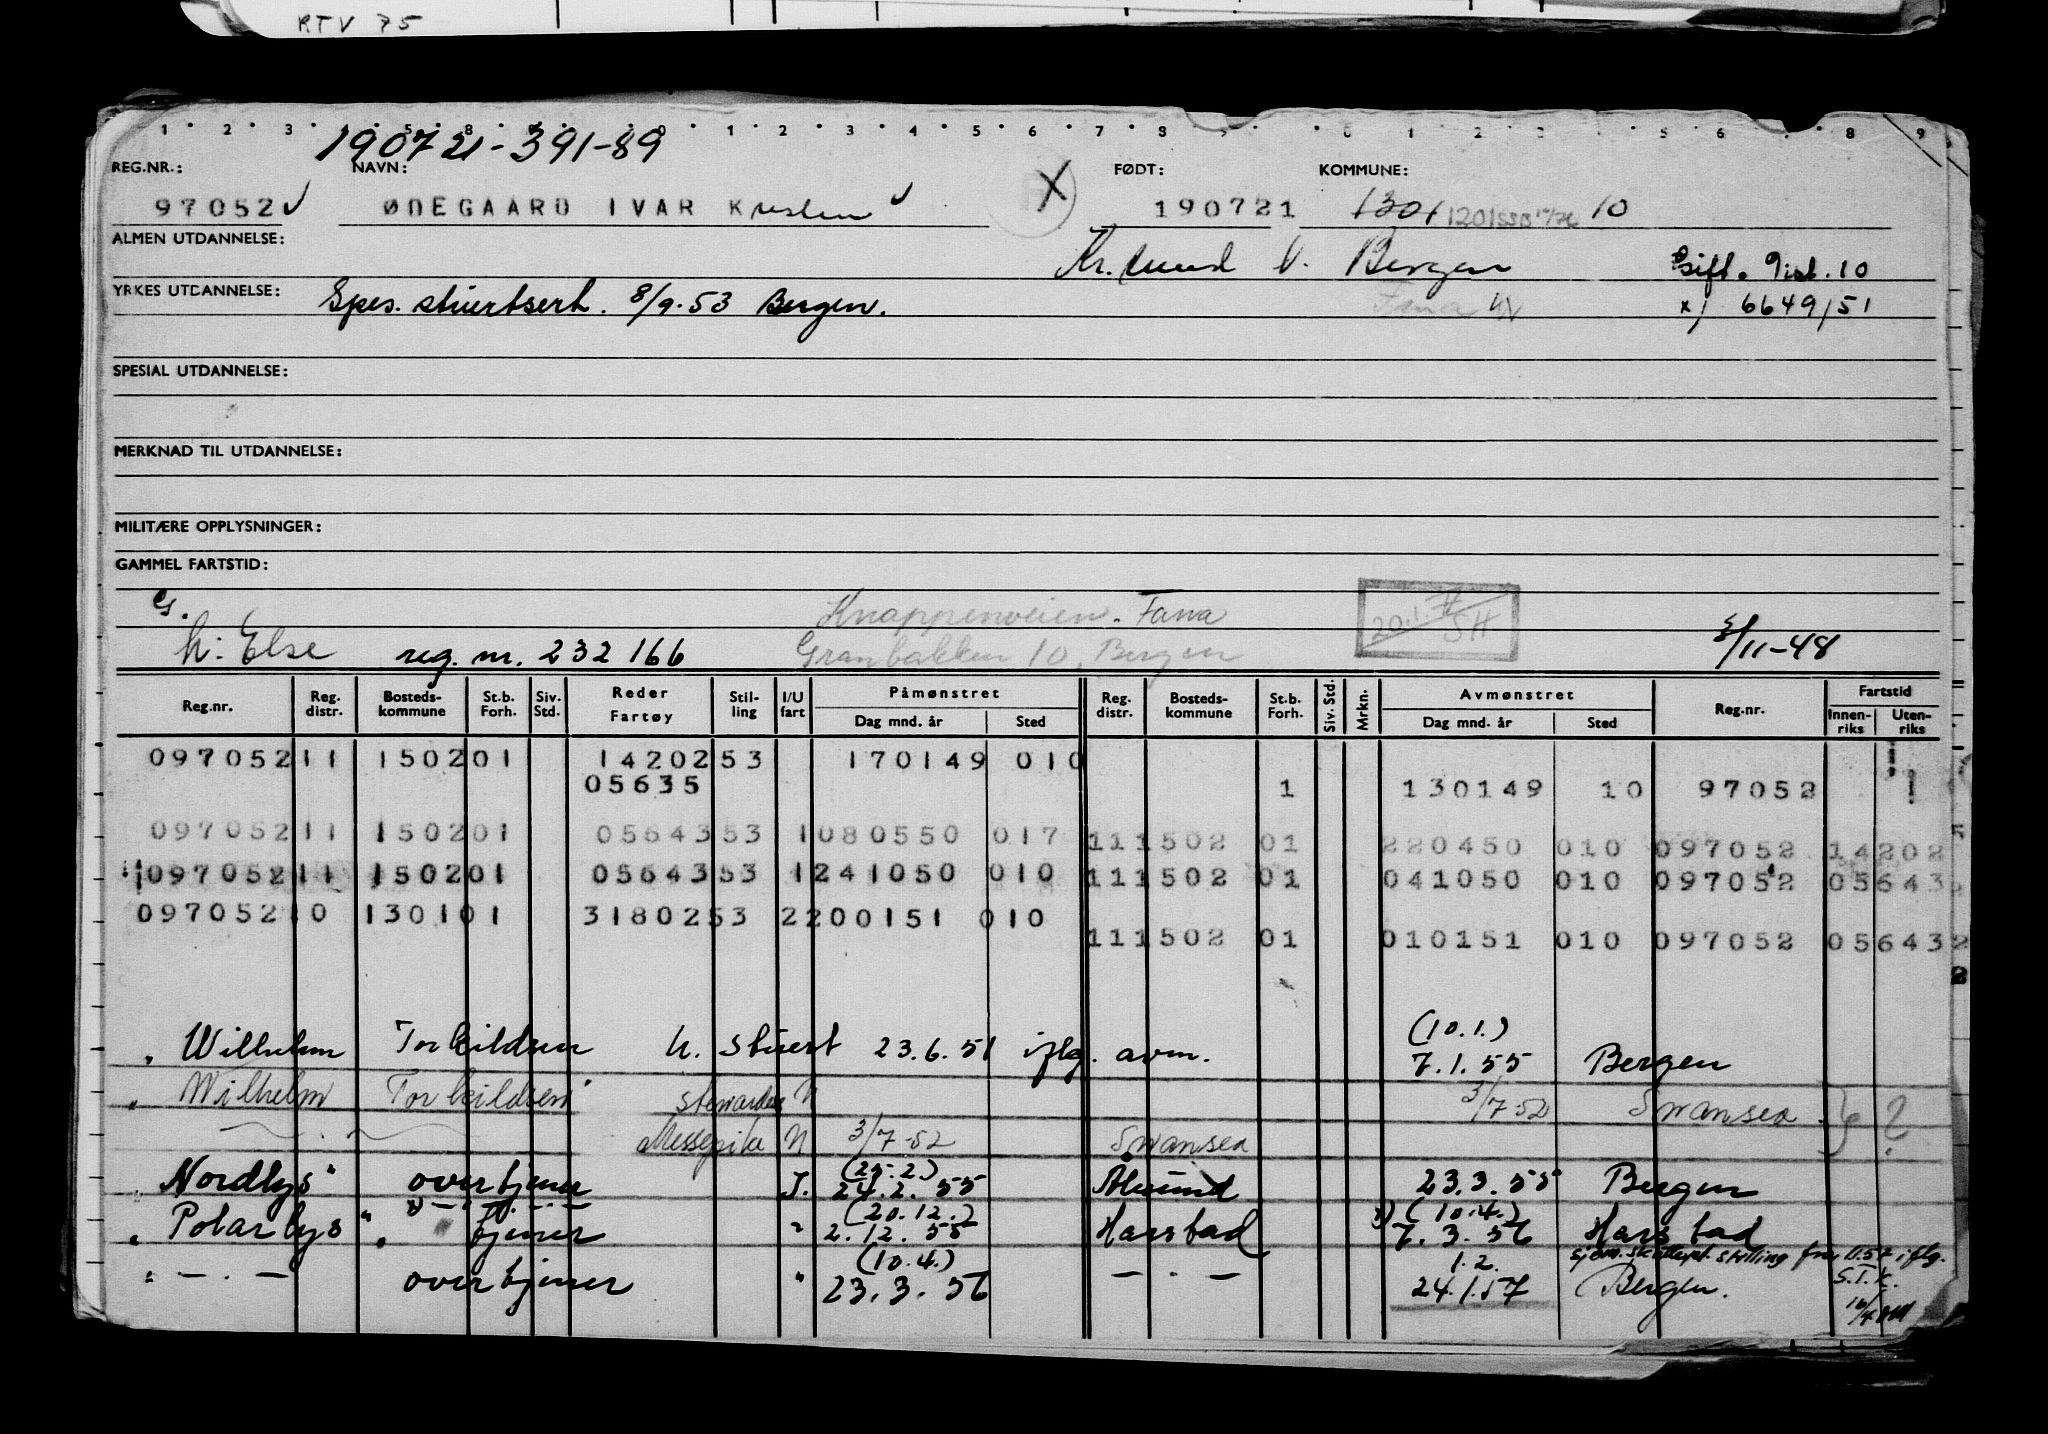 RTV 75
1 2 3 5 8 0 1 2 3 4 5 6 7 8 9 0 1 2 3 5 6 8 9
190721-391-89
REG.NR.: NAVN: FØDT: KOMMUNE:
97052 ✓ ØDEGAARD IVAR Kristen ✓ X 190721 1301 1201 10
ALMEN UTDANNELSE: Kr.sund N. Bergen Gift. Dist. 10
YRKES UTDANNELSE: Spes. stuertsert. 8/9.53 Bergen. Fana x) 6649/51
SPESIAL UTDANNELSE:
MERKNAD TIL UTDANNELSE:
MILITÆRE OPPLYSNINGER:
GAMMEL FARTSTID:
G. Knappenveien. Fana 20.1. SH
h: Else reg. nr. 232 166 Granbakken 10, Bergen /11-48
Reg.nr. Reg. distr. Bosteds-kommune St.b. Forh. Siv. Std. Reder Fartøy Stil-ling I/U fart Påmønstret Dag mnd. år Sted Reg. distr. Bosteds-kommune St.b. Forh. Siv. Std. Mrkn. Avmønstret Dag mnd. år Sted Reg.nr. Fartstid Innen-riks Uten-riks
097052 11 1502 01 14202 53 170149 010
05635 1 130149 10 97052
097052 11 1502 01 05643 53 1 080550 017 11 1502 01 220450 010 097052 14202
097052 11 1502 01 05643 53 1 241050 010 11 1502 01 041050 010 097052 05643 2
097052 10 1301 01 31802 53 2 200151 010
11 1502 01 010151 010 097052 05643 2
2
(10.1.)
" Wilhelm Torkildsen U. stuert 23.6.51 iflg. avm. 7.1.55 Bergen
" Wilhelm Torkildsen" U 3/7-52 Swansea } ?
Messepike U 3/7-52 Swansea
(25.2.)
"Nordlys" overtjener I. 24.2.55 Ålesund 23.3.55 Bergen
(20.12.) x) (10.4.)
"Polarlys" " tjener " 2.12.55 Harstad 7.3.56 Harstad
(10.4.) 1.2. stilling iflg. S.T.K.
" — . — overtjener " 23.3.56 — . — 24.1.57 Bergen.